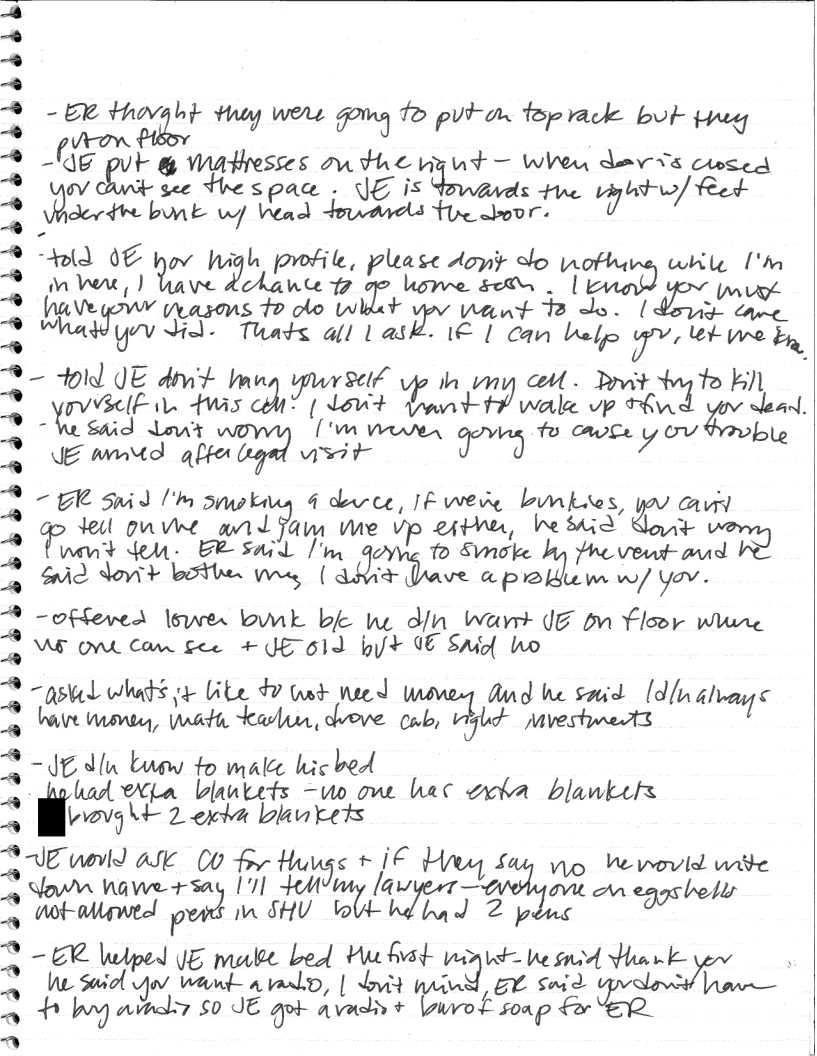 - ER thought they were going to put on top rack but they
put on floor
- JE put mattresses on the right - when door is closed
you can't see the space. JE is towards the right w/ feet
under the bunk w/ head towards the door.
-
- told JE your high profile, please don't do nothing while I'm
in here, I have a chance to go home soon. I know you must
have your reasons to do what you want to do. I don't care
what you did. Thats all I ask. If I can help you, let me know.
- told JE don't hang yourself up in my cell. Don't try to kill
yourself in this cell. I don't want to wake up + find you dead.
- he said don't worry I'm never going to cause you trouble
JE arrived after legal visit
- ER said I'm smoking a deuce, if we're bunkies, you can't
go tell on me and jam me up either, he said don't worry
I won't tell. ER said I'm going to smoke by the vent and he
said don't bother me, I don't have a problem w/ you.
- offered lower bunk b/c he d/n want JE on floor where
no one can see + JE old but JE said no
- asked what's it like to not need money and he said I d/n always
have money, math teacher, drove cab, right investments
- JE d/n know to make his bed
he had extra blankets - no one has extra blankets
brought 2 extra blankets
- JE would ask CO for things + if they say no he would write
down name + say I'll tell my lawyers - everyone on eggshells
not allowed pens in SHU but he had 2 pens
- ER helped JE make bed the first night - he said thank you
he said you want a radio, I don't mind, ER said you don't have
to buy a radio so JE got a radio + bar of soap for ER